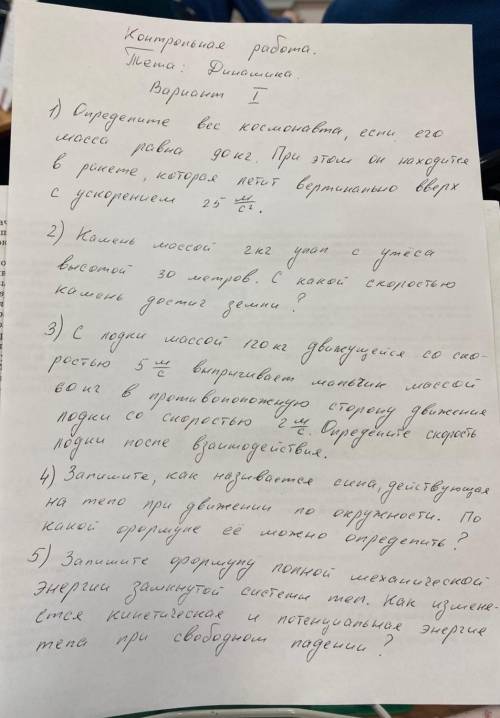 Контрольная работа.
Тема: Динамика.
Вариант I
1) Определите вес космонавта, если его
масса равна 90кг. При этом он находится
в ракете, которая летит вертикально вверх
с ускорением 25 м/с².
2) Камень массой 2кг упал с утёса
высотой 30 метров. С какой скоростью
камень достиг земли?
3) С лодки массой 120кг движущейся со ско-
ростью 5 м/с выпрыгивает мальчик массой
60кг в противоположную сторону движения
лодки со скоростью 2 м/с. Определите скорость
лодки после взаимодействия.
4) Запишите, как называется сила, действующая
на тело при движении по окружности. По
какой формуле её можно определить?
5) Запишите формулу полной механической
энергии замкнутой системы тел. Как изменя-
ется кинетическая и потенциальная энергие
тела при свободном падении?